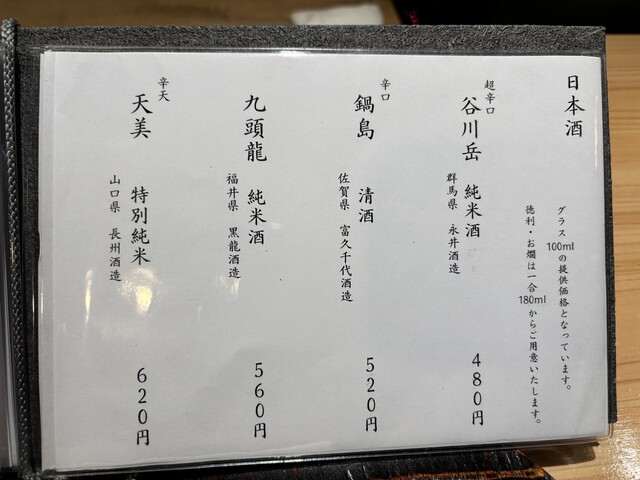 日本酒
グラス100mlの提供価格となっています。
徳利・お燗は一合180mlからご用意いたします。
超辛口
谷川岳 純米酒 480円
群馬県 永井酒造
辛口
鍋島 清酒 520円
佐賀県 富久千代酒造
九頭龍 純米酒 560円
福井県 黒龍酒造
辛天
天美 特別純米 620円
山口県 長州酒造